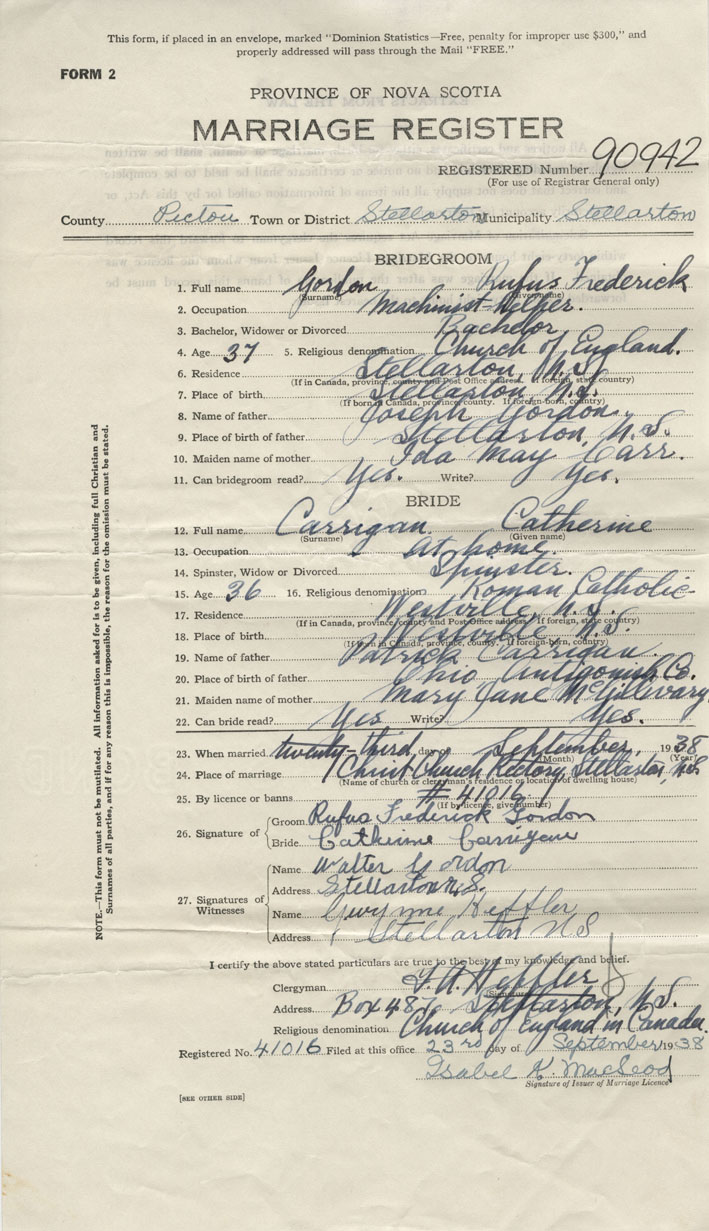 This form, if placed in an envelope, marked "Dominion Statistics—Free, penalty for improper use $300," and
properly addressed will pass through the Mail "FREE."
FORM 2
PROVINCE OF NOVA SCOTIA
MARRIAGE REGISTER
REGISTERED Number 90942
(For use of Registrar General only)
County Pictou Town or District Stellarton Municipality Stellarton
BRIDEGROOM
1. Full name Gordon Rufus Frederick
(Surname) (Given name)
2. Occupation Machinist-Helper.
3. Bachelor, Widower or Divorced Bachelor
4. Age 37 5. Religious denomination Church of England.
6. Residence Stellarton, N.S.
(If in Canada, province, county and Post Office address. If foreign, state country)
7. Place of birth Stellarton N.S.
(If born in Canada, province, county. If foreign-born, country)
8. Name of father Joseph Gordon.
9. Place of birth of father Stellarton, N.S.
10. Maiden name of mother Ida May Carr.
11. Can bridegroom read? Yes. Write? Yes.
BRIDE
12. Full name Carrigan Catherine
(Surname) (Given name)
13. Occupation at home.
14. Spinster, Widow or Divorced Spinster.
15. Age 36 16. Religious denomination Roman Catholic
17. Residence Westville, N.S.
(If in Canada, province, county and Post Office address. If foreign, state country)
18. Place of birth Westville N.S.
(If born in Canada, province, county. If foreign-born, country)
19. Name of father Patrick Carrigan.
20. Place of birth of father Ohio Antigonish Co.
21. Maiden name of mother Mary Jane McGillivary
22. Can bride read? Yes Write? Yes.
23. When married twenty-third day of September, 1938
(Month) (Year)
24. Place of marriage Christ Church Rectory, Stellarton, N.S.
(Name of church or clergyman's residence or location of dwelling house)
25. By licence or banns #41016
(If by licence, give number)
26. Signature of Groom Rufus Frederick Gordon
Bride Catherine Carrigan
27. Signatures of Witnesses
Name Walter Gordon
Address Stellarton N.S.
Name Gwynne Heffler
Address Stellarton NS
I certify the above stated particulars are true to the best of my knowledge and belief.
Clergyman Heffler
Address Box 487 Stellarton, N.S.
Religious denomination Church of England in Canada.
Registered No. 41016 Filed at this office 23rd day of September 1938
Isabel K. MacLeod
Signature of Issuer of Marriage Licence
[SEE OTHER SIDE]
NOTE.—This form must not be mutilated. All information asked for is to be given, including full Christian and
Surnames of all parties, and if for any reason this is impossible, the reason for the omission must be stated.